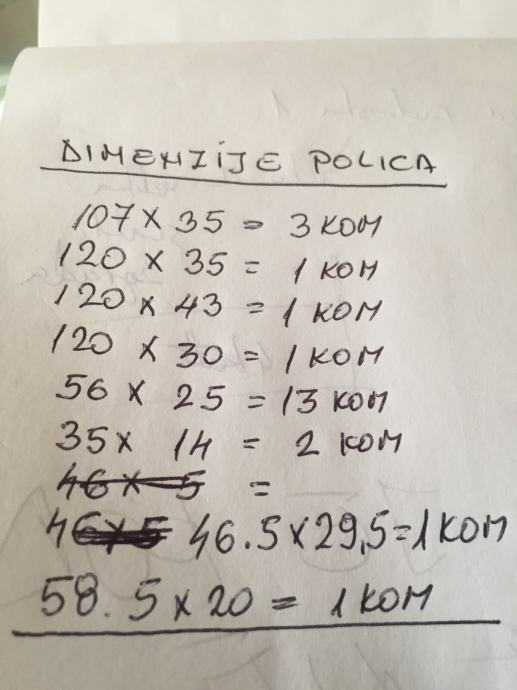 DIMENZIJE POLICA
107 x 35 = 3 KOM
120 x 35 = 1 KOM
120 x 43 = 1 KOM
120 x 30 = 1 KOM
56 x 25 = 13 KOM
35 x 14 = 2 KOM
46 x 5 =
46 x 5 46.5 x 29,5 = 1 KOM
58.5 x 20 = 1 KOM